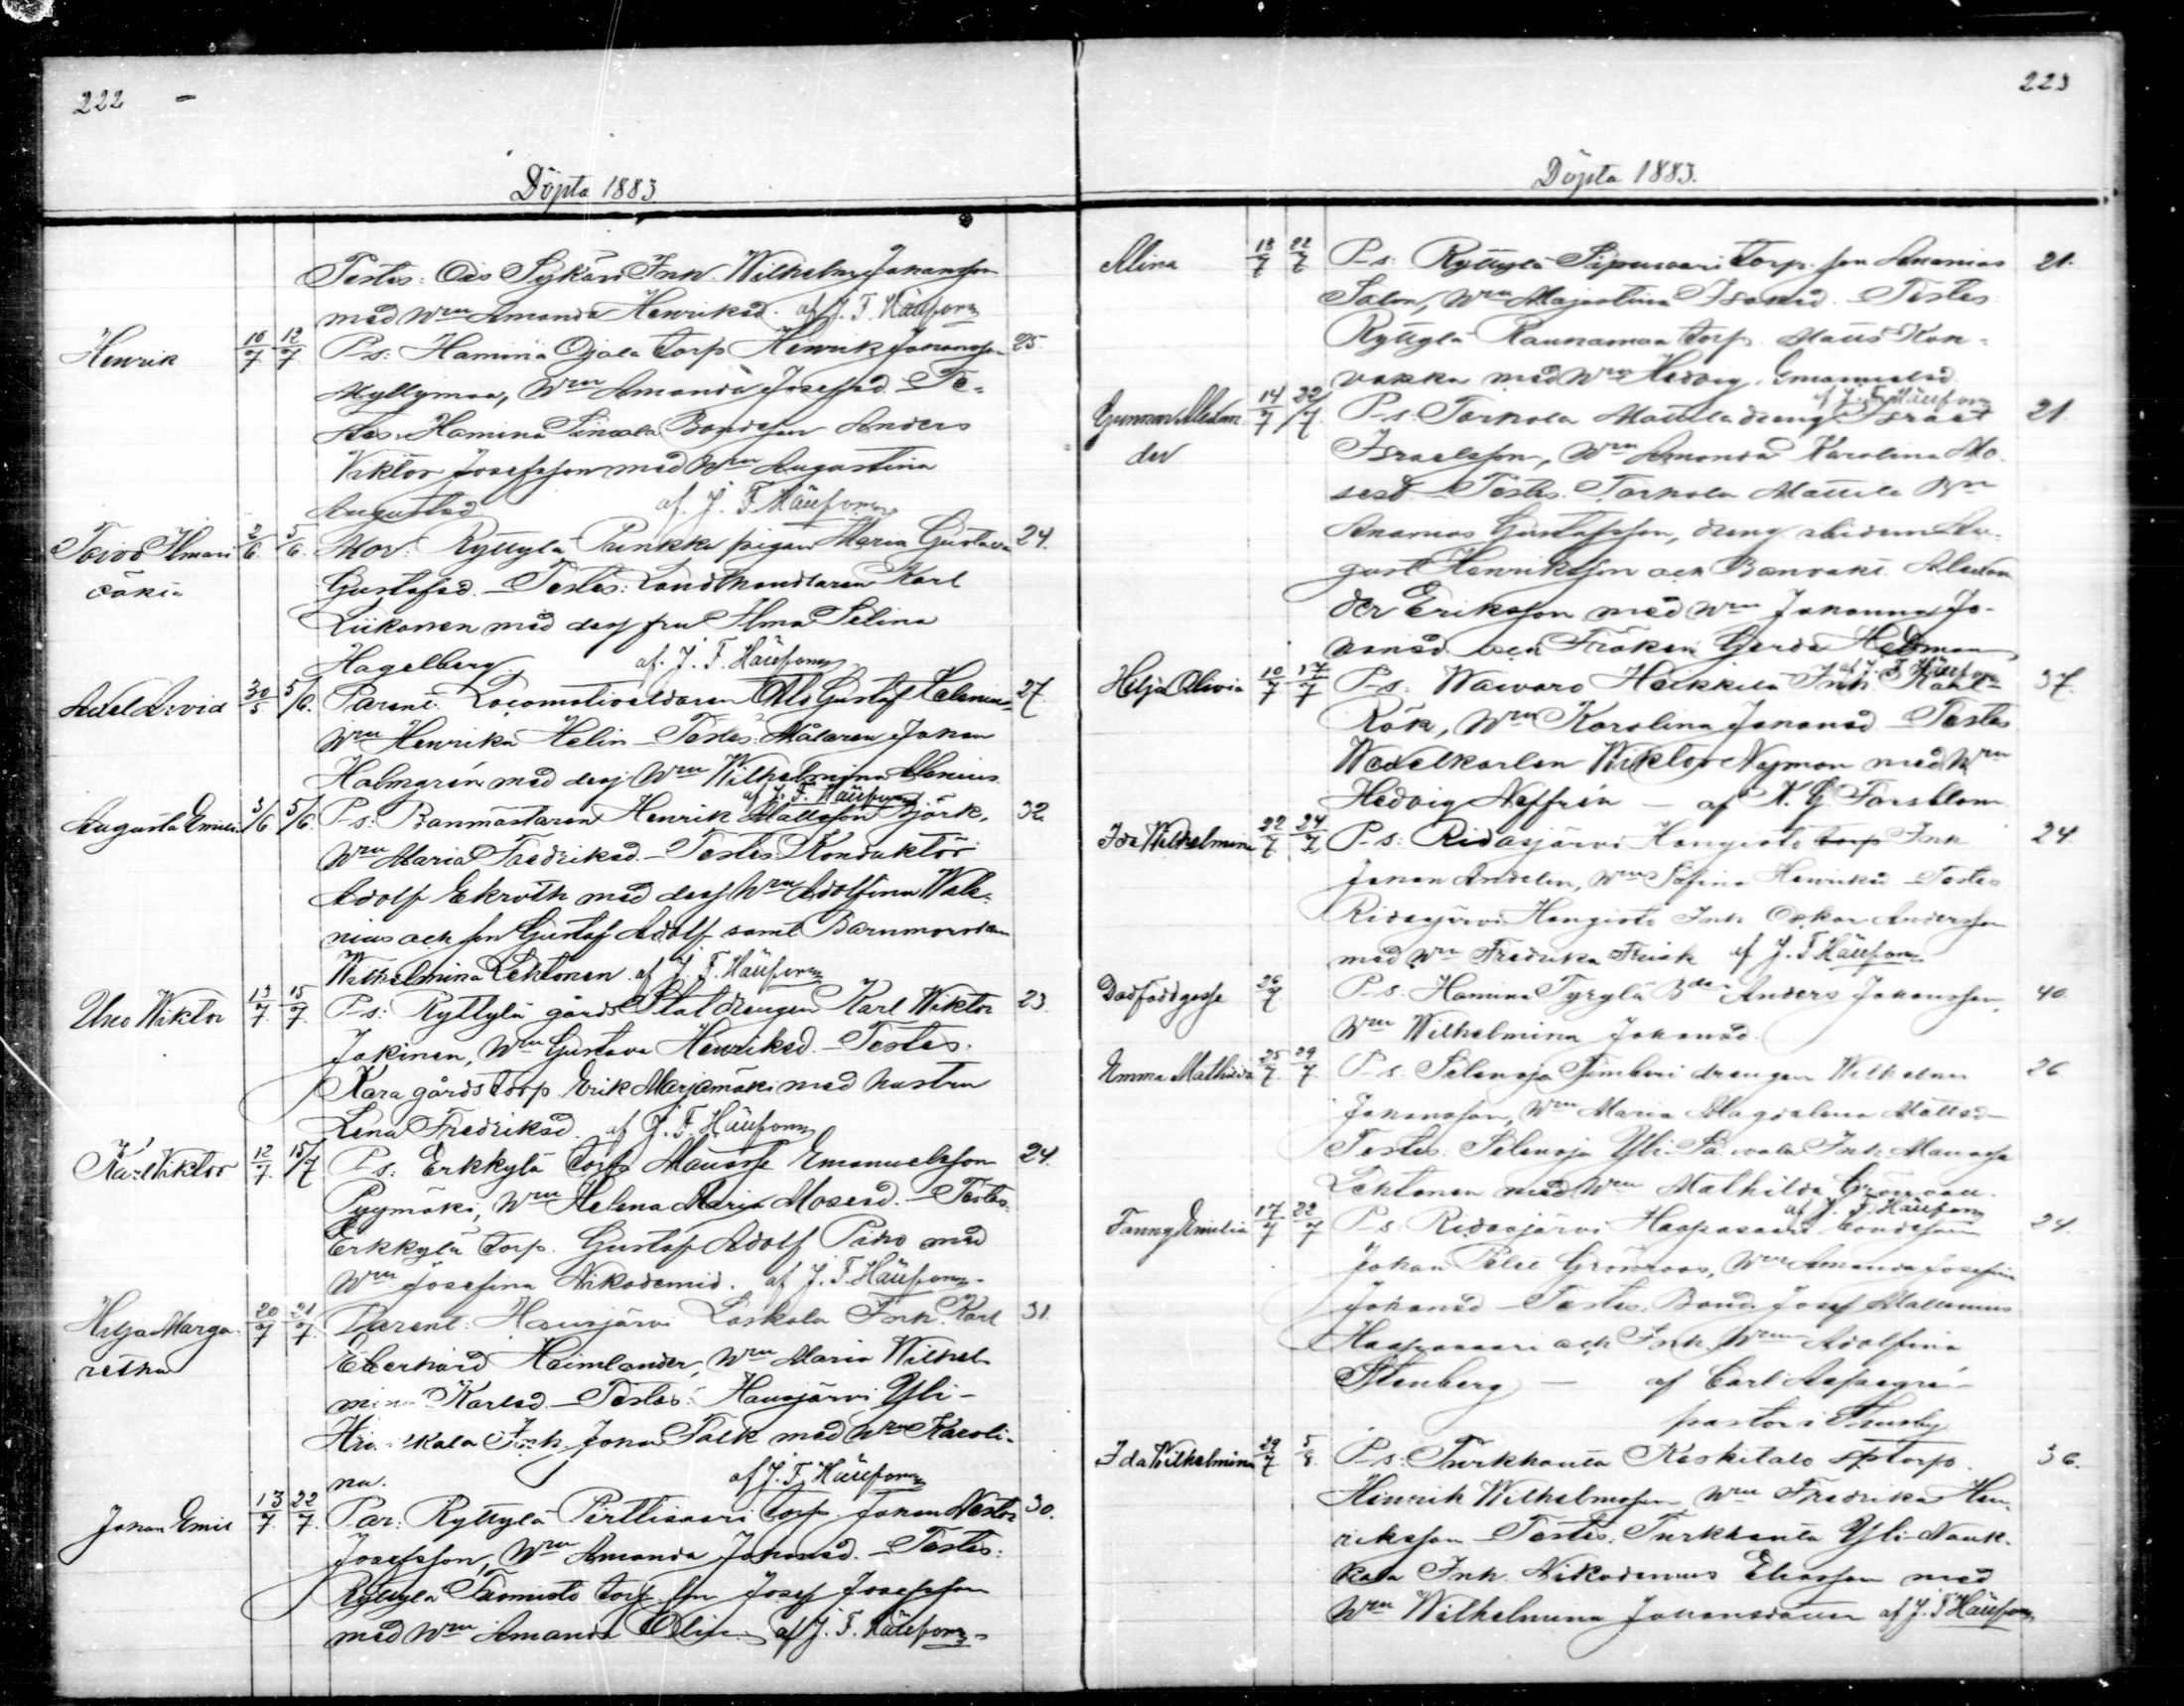 222 -
Döpta 1883
Testes: Ois Sykäri Inh. Wilhelm Johansson
med Wrm Amanda Henriksd. af J. F. Häufvorn
Henrik 10/7 12/7 P-s: Hamina Ojala torp Henrik Johansson 25
Myllymaa, Wrm Amanda Josefsd. Te-
stes: Hamina Bondeson Anders
Viktor Josefsson med Wrm Augustina
Augustsd af J. F.
Toivo Ilmari 2/6 5/6 Mor: Ryttylä Punkka pigan Maria Gustava 24.
oäkta Gustafsd. - Testes: Landthandlaren Karl
Liikanen med dess fru Ilma Selina
Hagelberg. af. J. F.
Axel Arvid 30/5 5/6. Parent: Locomotiveldaren Otto Gustaf 27.
Wrm Henrika Helin - Testes: Målaren Johan
Holmgrén med dess Wrm Wilhelmina Alenius
af J. F.
Augusta Emilia 3/6 5/6 P-s: Banmästaren Henrik Mattsson Björk, 32
Wrm Maria Fredriksd. - Testes: Konduktör
Adolf Ekroth med dess Wrm Adolfina Wale-
nius och son Gustaf Adolf samt Barnmorskan
Wilhelmina Lehtonen. af J. F.
Uno Wiktor 13/7 15/7 P-s: Ryttylä gårds Statdrengen Karl Wiktor 23.
Jokinen, Wrm Gustava Henriksd. - Testes:
Kara gårds torp. Erik Marjamäki med hustru
Lena Fredriksd. af J. F.
Karl Viktor 12/7 15/7 P-s: Erkkylä torp. Manasse Emanuelsson 24.
Pyymäki, Wrm Helena Maria Mosesd. - Testes:
Erkkylä torp. Gustaf Adolf med
Wrm Josefina Nikodemid. af J. F.
Hilja Marga- 20/7 21/7 Parent: Hausjärvi Laskala Inh. Karl 31.
retha Eberhard Heimlander, Wrm Maria Wilhel-
mina Karlsd. - Testes: Hausjärvi Yli-
Inh. Johan Falk med Wrm Karoli-
na. af J. F.
Johan Emil 13/7 22/7 Par: Ryttylä Pirttisaari torp. Johan Nestor 30.
Josefsson, Wrm Amanda Johansd. - Testes:
Ryttylä torp. son Josef Josefsson
med Wrm Amanda Olin. af J. F.
223
Döpta 1883.
Alina 18/7 22/7 P-s: Ryttylä torp. son Ananias 21.
Salon, Wrm Majastina Isaksd. - Testes
Ryttylä Raunamaa torp. Matts Kon-
vakka med Wrm Hedvig Emanuelsd.
af J. F.
Gunnar Alexan- 14/7 22/7 P-s: Torhola Mattila dreng Israel 21.
der Israelsson, Wrm Amanda Karolina Mo-
sesd. - Testes: Torhola Mattila
Ananias Gustafsson, dreng Au-
gust Henriksson och Banvakt. Alexan
der Eriksson med Wrm Johanna Jo-
hansd och Fröken Gerda Hedman
af J. F.
Helja Olivia 10/7 17/7 P-s: Wawaro Heikkilä Inh Karl 37.
Rök, Wrm Karolina Johansd. - Testes
Wexelkarlen Wiktor Nyman med Wrm
Hedvig Neffrén - af K. G Forsblom
Ida Wilhelmina 22/7 24/7 P-s: Ridasjärvi Hongisto torp Inh 24.
Johan Andelin, Wrm Sofina Henriksd. - Testes
Ridasjärvi Hongisto Inh Oskar Andersson
med Wrm Fredrika Frisk af J. F.
Dödfödd gosse 26/7 P-s: Hamina Tyrylä Anders Johansson, 40.
Wrm Wilhelmina Johansd.
Emma Mathilda 25/7 29/7 P-s: Selänoja Jimberi drengen Wilhelm 26
Johansson, Wrm Maria Magdalena Mattsd -
Testes: Selänoja Yli- Inh. Manasse
Lehtonen med Wrm Mathilda Grönroos.
af J. F.
Fanny Emilia 17/7 22/7 P-s: Ridasjärvi Haapasaari bondeson 24.
Johan Grönroos, Wrm Amanda Josefina
Johansd - Testes: Bond. Josef
Haapasaari och Inh. Wrm Adolfina
Stenberg - af Carl
pastor i Thusby
Ida Wilhelmina 29/7 5/8. P-s: Turkhauta Keskitalo torp. 36.
Henrik Wilhelmsson Wrm Fredrika Hen-
riksson - Testes: Turkhauta Yli-Nauk-
kala Inh. Nikodemus Eliasson med
Wrm Wilhelmina Johansdotter af J. F.